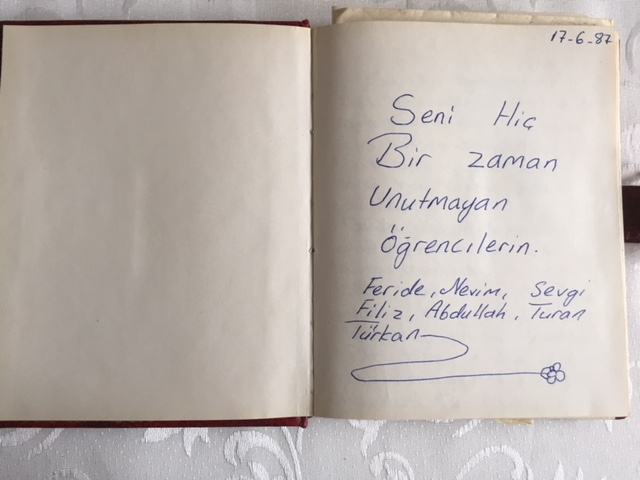 17-6-87
Seni Hiç
Bir zaman
Unutmayan
Öğrencılerin.
Feride, Nevim, Sevgi
Filiz, Abdullah, Turan
Türkan